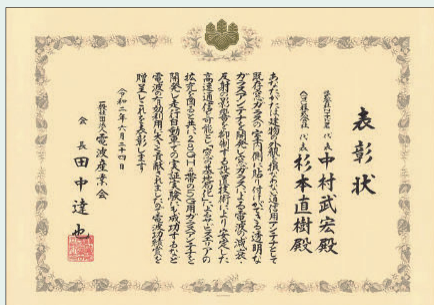 表彰状
代表 中村武宏殿
代表 杉本直樹殿
あなたがたは建物の外観を損なわない通信用アンテナとして
既存窓ガラスの室内側に貼り付けができる透明な
ガラスアンテナを開発し窓ガラスによる電波の減衰、
反射の影響を抑制する設置技術により安定した
高速通信を可能とし窓の基地局化によるサービスエリアの
拡充を図ると共に28GHz帯の5G用ガラスアンテナを
開発し走行自動車での実証実験にも成功するなど
電波の有効利用に寄与貢献されましたので電波功績賞を
贈呈しこれを表彰します
令和三年六月二十四日
一般社団法人電波産業会
会長 田中達也